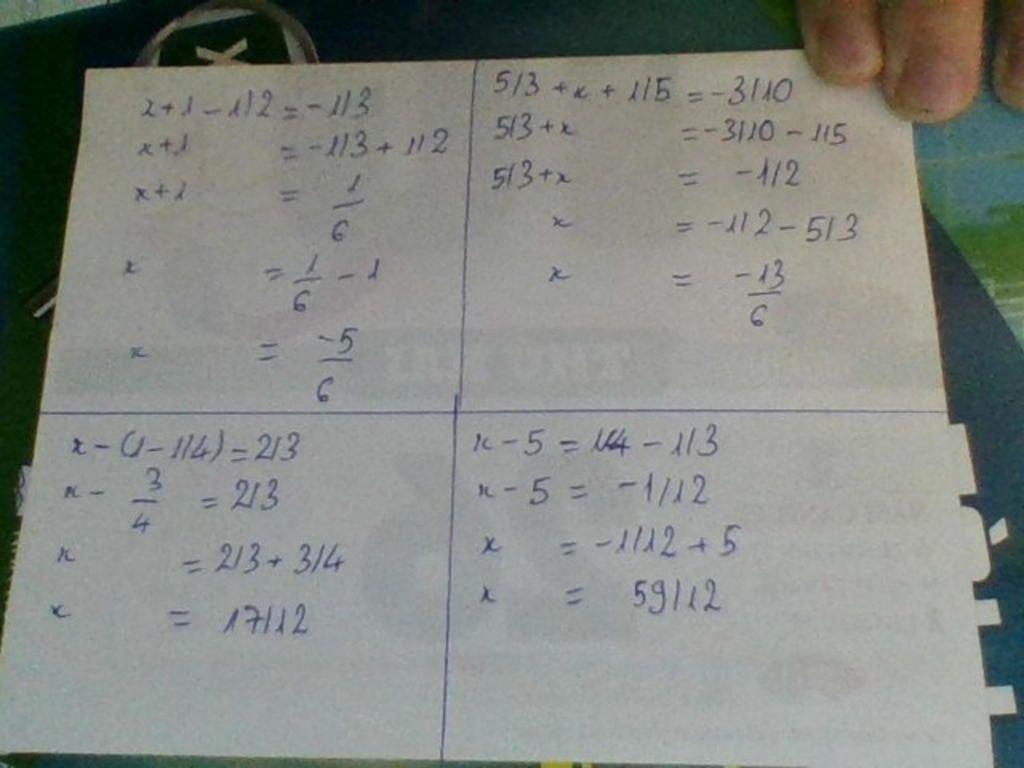 x+1-1/2=-1/3
x+1 =-1/3+1/2
x+1 = 1/6
x = 1/6 - 1
x = -5/6
5/3+x+1/5=-3/10
5/3+x =-3/10-1/5
5/3+x = -1/2
x =-1/2-5/3
x = -13/6
x-(1-1/4)=2/3
x- 3/4 =2/3
x =2/3+3/4
x = 17/12
x-5=1/4-1/3
x-5= -1/12
x =-1/12+5
x = 59/12